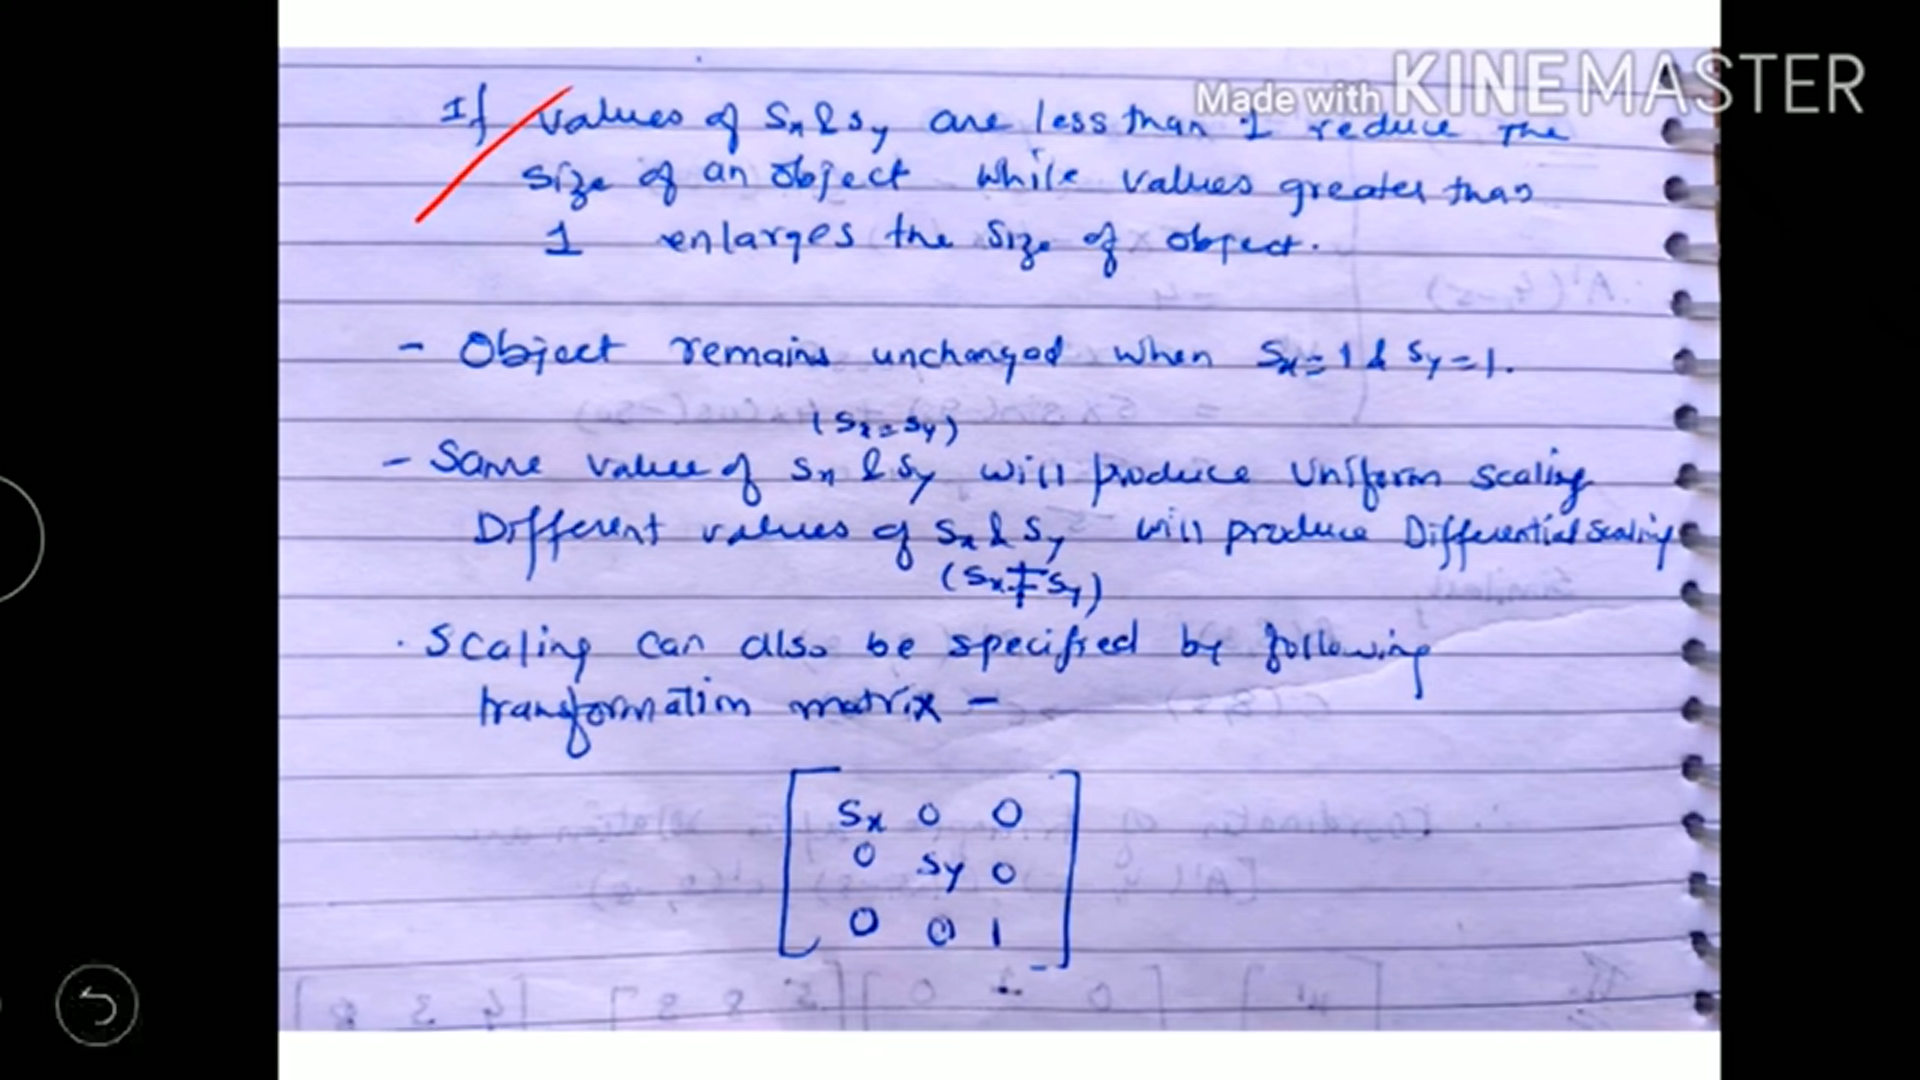 Made with KINEMASTER
If values of Sx & Sy are less than 1 reduce the
size of an object while values greater than
1 enlarges the size of object.
- Object remains unchanged when Sx = 1 & Sy = 1.
(Sx = Sy)
- Same value of Sx & Sy will produce Uniform scaling
Different values of Sx & Sy will produce Differential scaling
(Sx ≠ Sy)
. Scaling can also be specified by following
transformation matrix -
Sx 0 0
0 Sy 0
0 0 1